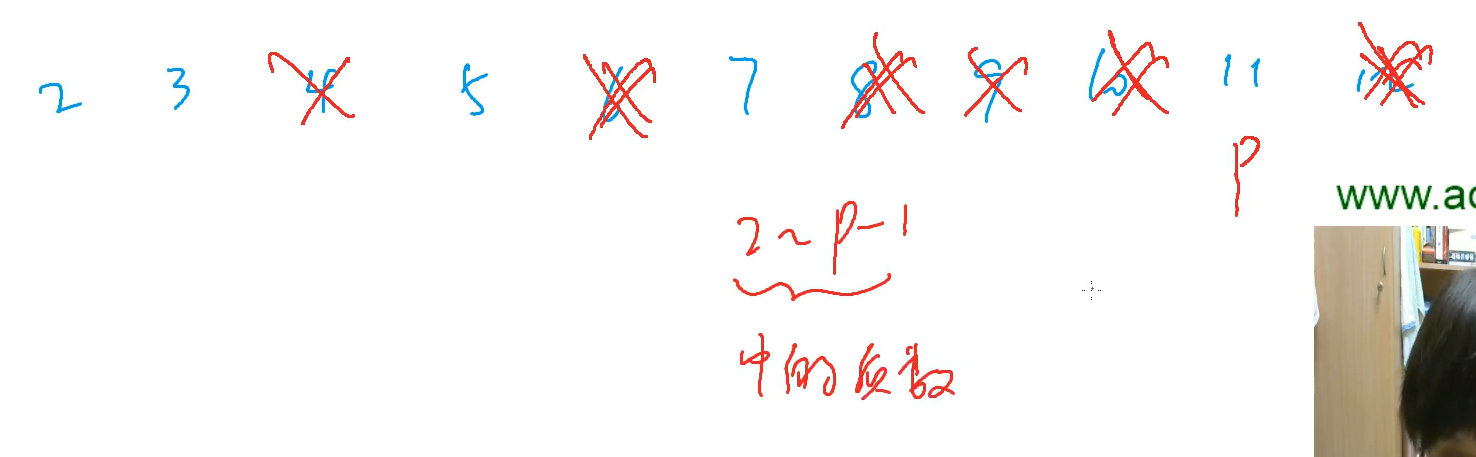 2 3 4 5 6 7 8 9 10 11 12
P
www.ac
2~P-1
中的质数